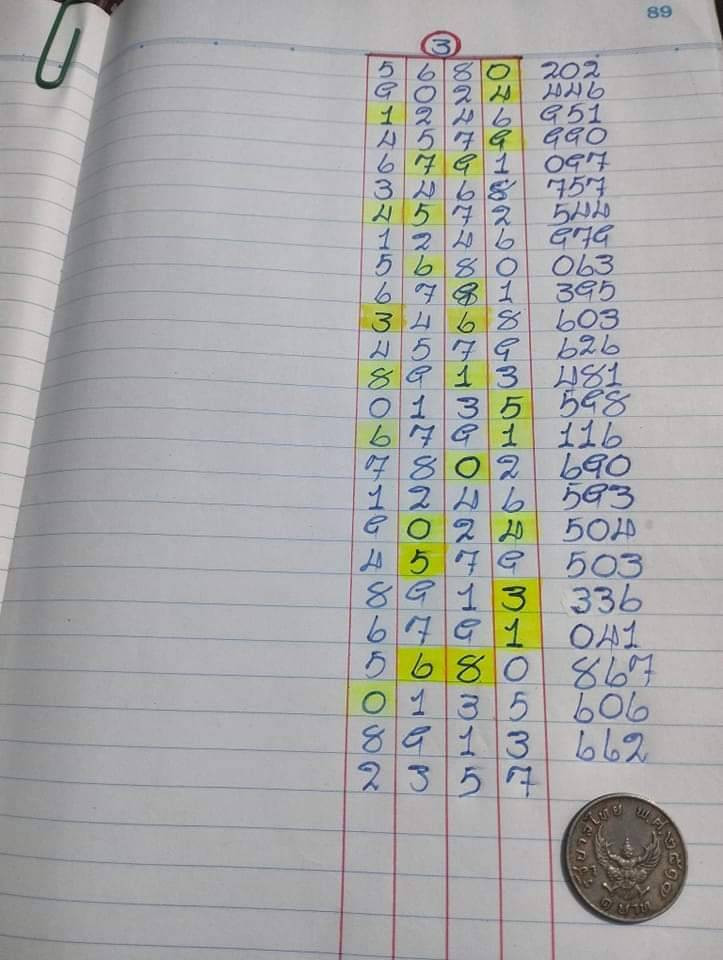 89
3
5 6 8 0 202
9 0 2 4 446
1 2 4 6 951
4 5 7 9 990
6 7 9 1 097
3 4 6 8 757
4 5 7 2 544
1 2 4 6 979
5 6 8 0 063
6 7 9 1 395
3 4 6 8 603
4 5 7 9 626
8 9 1 3 481
0 1 3 5 598
6 7 9 1 116
7 8 0 2 690
1 2 4 6 593
9 0 2 4 504
4 5 7 9 503
8 9 1 3 336
6 7 9 1 041
5 6 8 0 867
0 1 3 5 606
8 9 1 3 662
2 3 5 7
รัฐบาลไทย พ.ศ.๒๕๑๗
๑ บาท